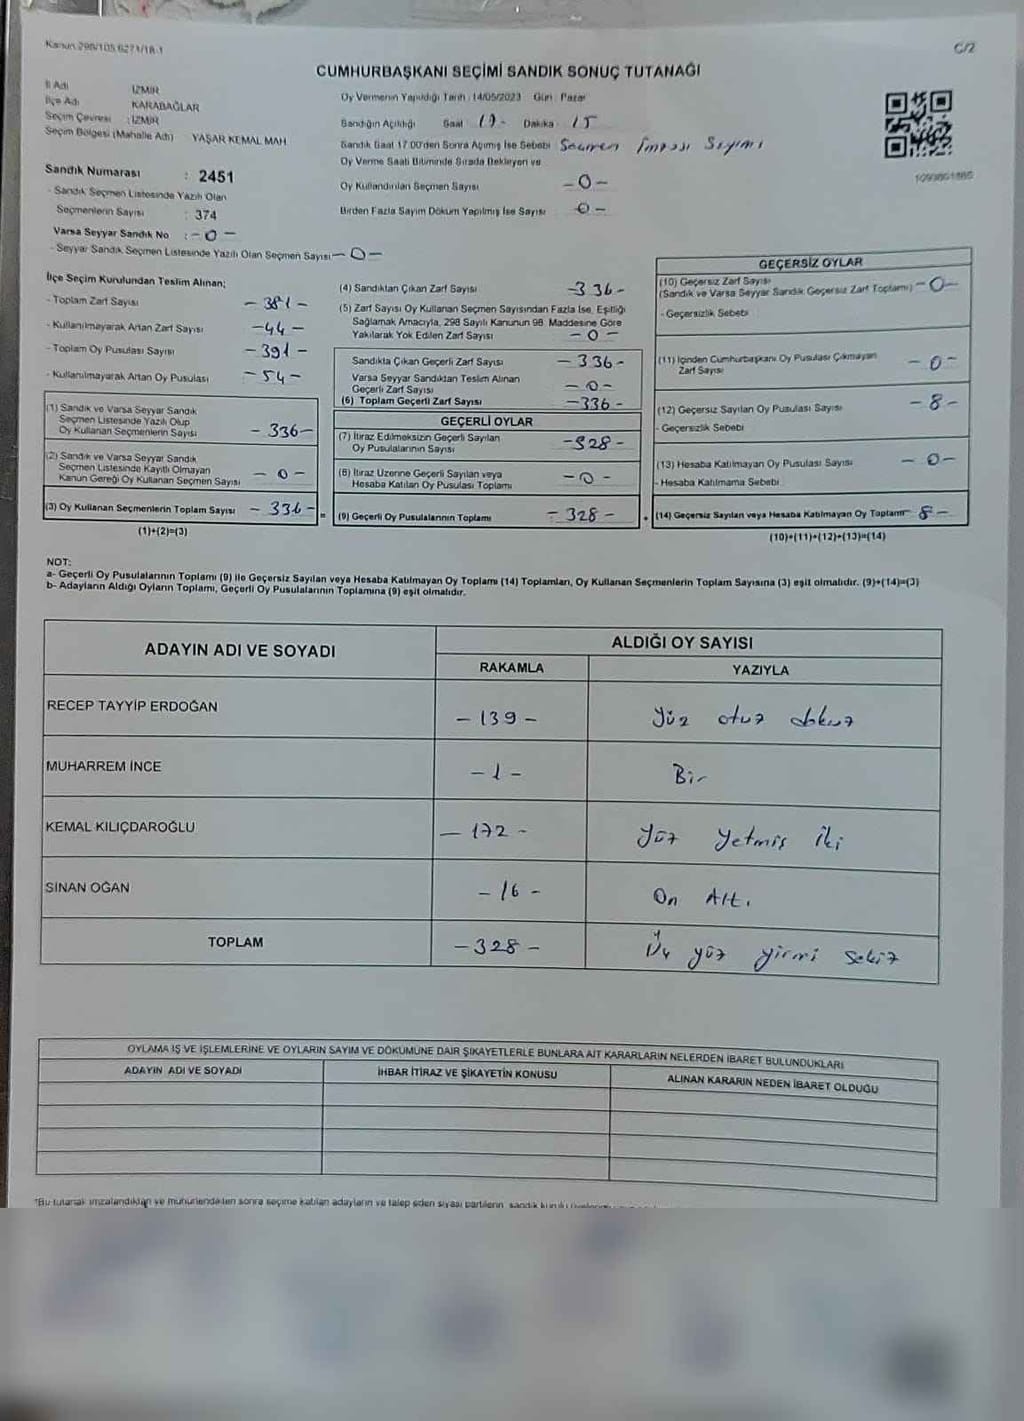 Kanun 298/105,6271/18-1
C/2
CUMHURBAŞKANI SEÇİMİ SANDIK SONUÇ TUTANAĞI
İl Adı : İZMİR
İlçe Adı : KARABAĞLAR
Seçim Çevresi : İZMİR
Seçim Bölgesi (Mahalle Adı) YAŞAR KEMAL MAH
Sandık Numarası : 2451
- Sandık Seçmen Listesinde Yazılı Olan
Seçmenlerin Sayısı : 374
Varsa Seyyar Sandık No : - 0 -
- Seyyar Sandık Seçmen Listesinde Yazılı Olan Seçmen Sayısı - 0 -
Oy Vermenin Yapıldığı Tarih : 14/05/2023 Gün : Pazar
Sandığın Açıldığı Saat 17 - Dakika : 15
Sandık Saat 17.00'den Sonra Açılmış İse Sebebi Seçmen İmzası Sayımı
Oy Verme Saati Bitiminde Sırada Bekleyen ve
Oy Kullandırılan Seçmen Sayısı - 0 -
Birden Fazla Sayım Döküm Yapılmış İse Sayısı - 0 -
1093801885
İlçe Seçim Kurulundan Teslim Alınan;
- Toplam Zarf Sayısı - 381 -
- Kullanılmayarak Artan Zarf Sayısı - 44 -
- Toplam Oy Pusulası Sayısı - 391 -
- Kullanılmayarak Artan Oy Pusulası - 54 -
(1) Sandık ve Varsa Seyyar Sandık
Seçmen Listesinde Yazılı Olup
Oy Kullanan Seçmenlerin Sayısı - 336 -
(2) Sandık ve Varsa Seyyar Sandık
Seçmen Listesinde Kayıtlı Olmayan
Kanun Gereği Oy Kullanan Seçmen Sayısı - 0 -
(3) Oy Kullanan Seçmenlerin Toplam Sayısı - 336 - =
(1)+(2)=(3)
(4) Sandıktan Çıkan Zarf Sayısı - 336 -
(5) Zarf Sayısı Oy Kullanan Seçmen Sayısından Fazla İse, Eşitliği
Sağlamak Amacıyla, 298 Sayılı Kanunun 98. Maddesine Göre
Yakılarak Yok Edilen Zarf Sayısı - 0 -
Sandıkta Çıkan Geçerli Zarf Sayısı - 336 -
Varsa Seyyar Sandıktan Teslim Alınan
Geçerli Zarf Sayısı - 0 -
(6) Toplam Geçerli Zarf Sayısı - 336 -
GEÇERLİ OYLAR
(7) İtiraz Edilmeksizin Geçerli Sayılan
Oy Pusulalarının Sayısı - 328 -
(8) İtiraz Üzerine Geçerli Sayılan veya
Hesaba Katılan Oy Pusulası Toplamı - 0 -
(9) Geçerli Oy Pusulalarının Toplamı - 328 - +
GEÇERSİZ OYLAR
(10) Geçersiz Zarf Sayısı
(Sandık ve Varsa Seyyar Sandık Geçersiz Zarf Toplamı) - 0 -
- Geçersizlik Sebebi
(11) İçinden Cumhurbaşkanı Oy Pusulası Çıkmayan
Zarf Sayısı - 0 -
(12) Geçersiz Sayılan Oy Pusulası Sayısı - 8 -
- Geçersizlik Sebebi
(13) Hesaba Katılmayan Oy Pusulası Sayısı - 0 -
- Hesaba Katılmama Sebebi
(14) Geçersiz Sayılan veya Hesaba Katılmayan Oy Toplamı - 8 -
(10)+(11)+(12)+(13)=(14)
NOT:
a- Geçerli Oy Pusulalarının Toplamı (9) ile Geçersiz Sayılan veya Hesaba Katılmayan Oy Toplamı (14) Toplamları, Oy Kullanan Seçmenlerin Toplam Sayısına (3) eşit olmalıdır. (9)+(14)=(3)
b- Adayların Aldığı Oyların Toplamı, Geçerli Oy Pusulalarının Toplamına (9) eşit olmalıdır.
ADAYIN ADI VE SOYADI
ALDIĞI OY SAYISI
RAKAMLA YAZIYLA
RECEP TAYYİP ERDOĞAN - 139 - Yüz otuz dokuz
MUHARREM İNCE - 1 - Bir
KEMAL KILIÇDAROĞLU - 172 - Yüz Yetmiş İki
SİNAN OĞAN - 16 - On Altı
TOPLAM - 328 - Üç yüz yirmi sekiz
OYLAMA İŞ VE İŞLEMLERİNE VE OYLARIN SAYIM VE DÖKÜMÜNE DAİR ŞİKAYETLERLE BUNLARA AİT KARARLARIN NELERDEN İBARET BULUNDUKLARI
ADAYIN ADI VE SOYADI İHBAR İTİRAZ VE ŞİKAYETİN KONUSU ALINAN KARARIN NEDEN İBARET OLDUĞU
*Bu tutanak imzalandıktan ve mühürlendikten sonra seçime katılan adayların ve talep eden siyasi partilerin sandık kurulu